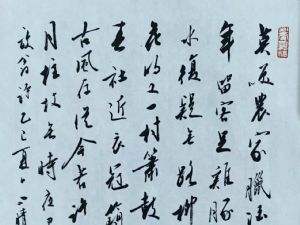 莫笑農家臘酒
年留客足雞豚
水複疑無路柳
花明又一村簫鼓
春社近衣冠簡
古風存從今若許
月拄杖無時夜
放翁詩乙巳夏日